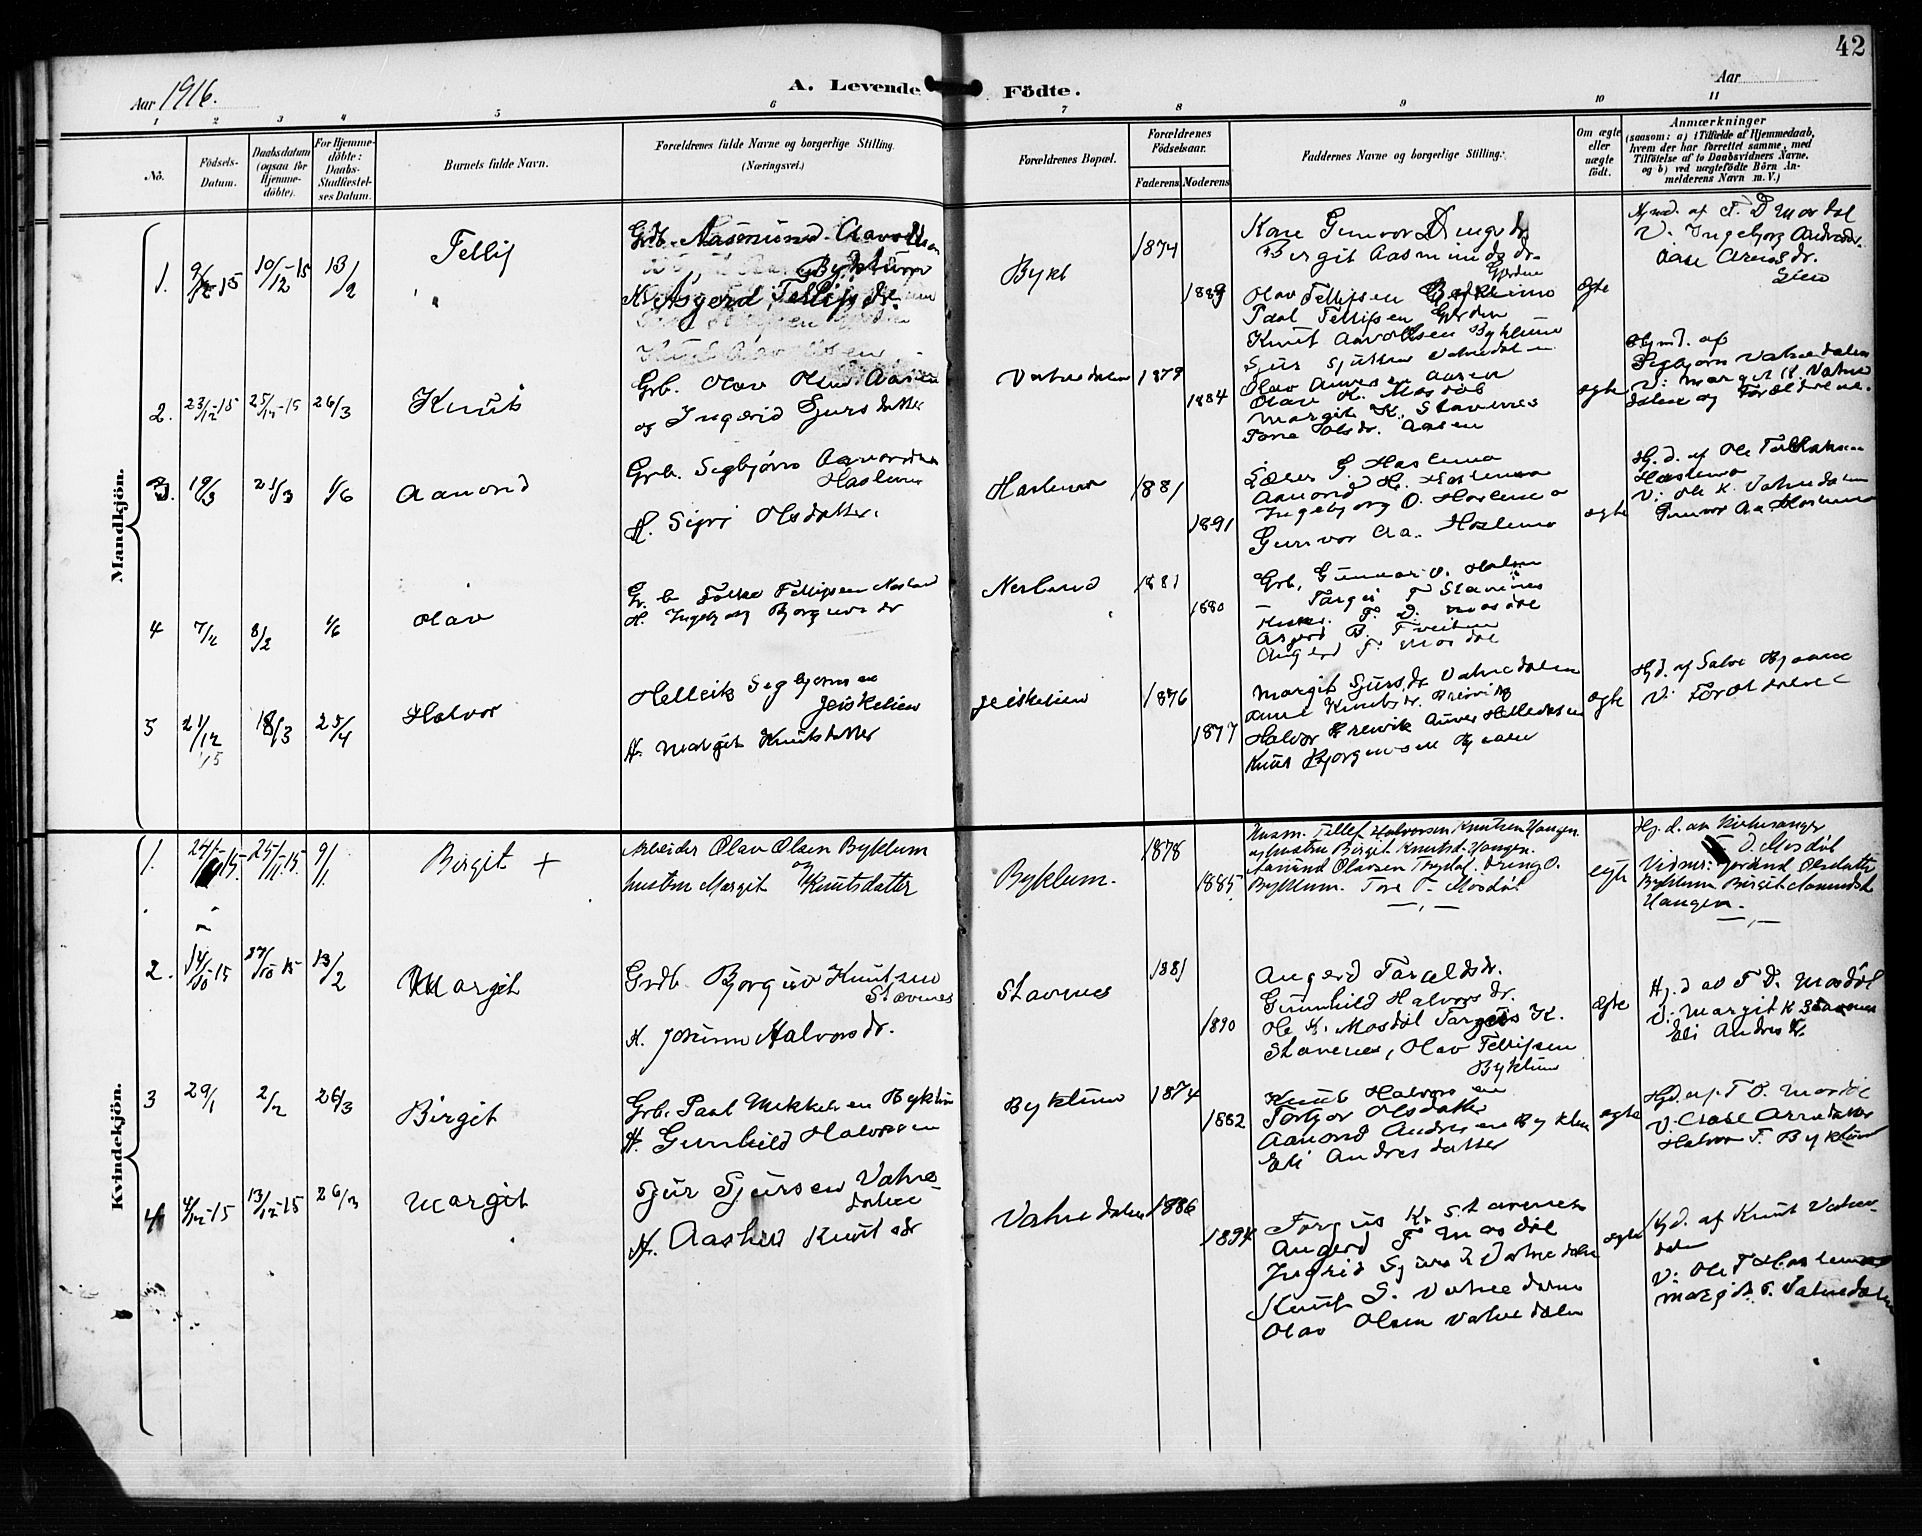 42
Aar 1916.
A. Levende Födte.
Aar
1 2 3 4 5 6 7 8 9 10 11
No.
Födsels-
Datum.
Daabsdatum
(ogsaa for
Hjemme-
döbte).
For Hjemme-
döbte:
Daabs-
Stadfæstel-
ses Datum.
Barnets fulde Navn.
Forældrenes fulde Navne og borgerlige Stilling.
(Næringsvei.)
Forældrenes Bopæl.
Forældrenes
Födselsaar.
Faderens
Moderens
Faddernes Navne og borgerlige Stilling.
Om ægte
eller
uægte
födt.
Anmærkninger
(saasom: a) i Tilfælde af Hjemmedaab,
hvem der har forrettet samme, med
Tilföielse af to Daabsvidners Navne,
og b) ved uægtefödte Börn An-
melderens Navn m. V.)
Mandkjön.
1. 9/12-15 10/12-15 13/2 Tellif
Grdb. Aasmund Aavoldsen
Byklum
K. Asgerd Tellifsdr.
Bykl 1874 1889
Kone Gunvor Drengsdr.
Birgit Aasmundsdr.
Gjerden
Olav Tellifsen Byklum
Paal Tellifsen Gjerden
Knut Aavoldsen Byklum
ægte
Hjmd. af T. D. Mosdøl
V. Ingeborg Andresdr.
Aase Arnesdr.
2. 23/12-15 25/12-15 26/3 Knut
Grb. Olav Olsen Aasen
og Ingerid Sjursdatter
Vatnedalen 1879 1884
Sjur Sjursen Vatnedalen
Olav Aasen
Olav K. Mosdøl
Margit K. Stavenes
Tone Olsdr. Aasen
ægte
Hjmd. af
Sigbjørn Vatnedalen
V: Margit K. Vatne
dalen og Forældrene.
3. 19/3 21/3 1/6 Aanond
Grb. Sigbjørn Aanondsen
Hoslemo
H. Sigri Olsdatter.
Hoslemo 1881 1891
G. Hoslemo
Aanond H. Hoslemo
Ingebjorg O. Hoslemo
Gunvor Aa. Hoslemo
ægte
Hj. d. af Ole
Hoslemo
V: Ole K. Vatnedalen
Gunvor Aa Hoslemo
4 7/2 8/2 1/6 Olav
Gr. b. Folke Tellifsen Nesland
H. Ingebjorg Bjorgulvsdr
Nesland 1881 1880
Grb. Gunnar O.
Targei T Stavenes
T. D. Mosdøl
Asgerd B. Tveiten
Angerd T. Mosdøl
5 21/12 15 18/3 25/4 Halvor
Helleik Sigbjørnsen
Jeiskelien
H. Margit Knutsdatter
Jeiskelien 1876 1877
Margit Sjursdr Vatnedalen
Anne Knutsdr. Breivik
Halvor Breivik
Knut Bjorgulvsen Bjaaen
ægte
Hjd. af Salve Bjaaen
V: Forældrene
Kvindekjön.
1. 24/11 15. 25/11-15. 9/1. Birgit +
Arbeider Olav Olsen Byklum
og
hustru Margit Knutsdatter
Byklum. 1878 1885
Husm. Tellef Halvorsen Knutsen Haugen.
og hustru Birgit Knutsd. Haugen.
Aamund Olavsen Trydal. Dreng O.
Byklum. Tore T. Mosdøl
—,—
egte
Hj. d. av Kirkesanger
T. D. Mosdøl
Vidner: Jorand Olsdatter
Byklum Birgit Aamundsd.
Haugen.
—,—
2. 14/10 15 17/10 15 13/2 Margit
Grdb. Bjorguv Knutsen
Stavnes
K. Jorunn Halvorsdr.
Stavnes 1881 1890
Angerd Taraldsdr.
Gunhild Halvorsdr.
Ole K. Mosdøl Targeis K.
Stavenes, Olav Tellifsen
Byklum
ægte
Hj. d av T D. Mosdøl
V: Margit K Stavenes
Eli Andres dr.
3 29/1 2/2 26/3 Birgit
Grb. Paal Mikkelsen Byklum
H. Gunhild Halvorsen
Byklum 1874 1882
Knut Halvorsen
Torbjor Olsdatter
Aanond Andresen Byklum
Eli Andresdatter
ægte
Hjd. af T D. Mosdøl
V: Aase Arnedatter
Halvor T. Byklum
4 4/12-15 13/12-15 26/3 Margit
Sjur Sjursen Vatne
dalen
H. Aashild Knutsdr
Vatnedalen 1886 1894
Torgus K. Stavenes
Angerd T Mosdøl
Ingrid Sjursdr Vatnedalen
Knut S. Vatnedalen
Olav Olsen Vatnedalen
ægte
Hjd. af Knut Vatne-
dalen
V: Ole T Hoslemo
Margit T. Vatnedalen